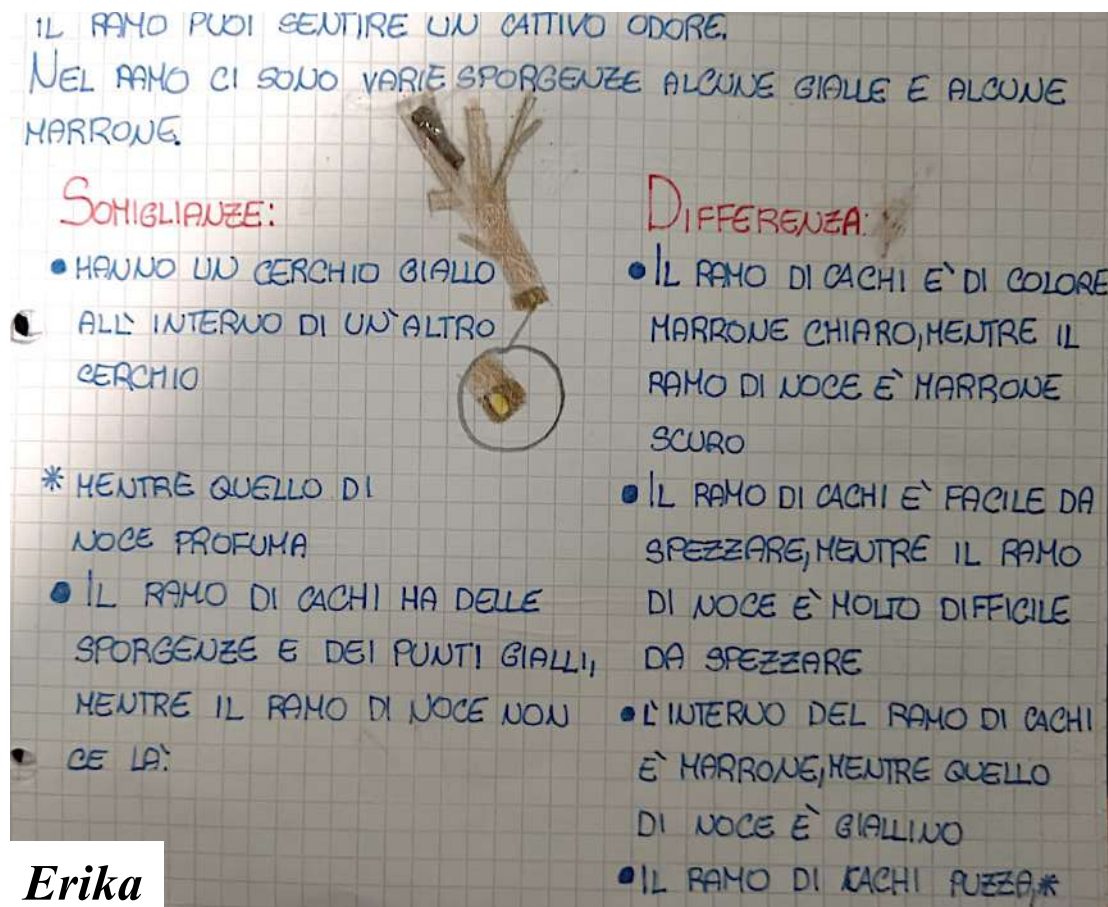 IL RAMO PUOI SENTIRE UN CATTIVO ODORE.
NEL RAMO CI SONO VARIE SPORGENZE ALCUNE GIALLE E ALCUNE
MARRONE.
SOMIGLIANZE:
• HANNO UN CERCHIO GIALLO
ALL' INTERNO DI UN'ALTRO
CERCHIO
* MENTRE QUELLO DI
NOCE PROFUMA
• IL RAMO DI CACHI HA DELLE
SPORGENZE E DEI PUNTI GIALLI,
MENTRE IL RAMO DI NOCE NON
CE LA'.
DIFFERENZA:
• IL RAMO DI CACHI E' DI COLORE
MARRONE CHIARO, MENTRE IL
RAMO DI NOCE E' MARRONE
SCURO
• IL RAMO DI CACHI E' FACILE DA
SPEZZARE, MENTRE IL RAMO
DI NOCE E' MOLTO DIFFICILE
DA SPEZZARE
• L'INTERNO DEL RAMO DI CACHI
E' MARRONE, MENTRE QUELLO
DI NOCE E' GIALLINO
• IL RAMO DI KACHI PUZZA,*
Erika